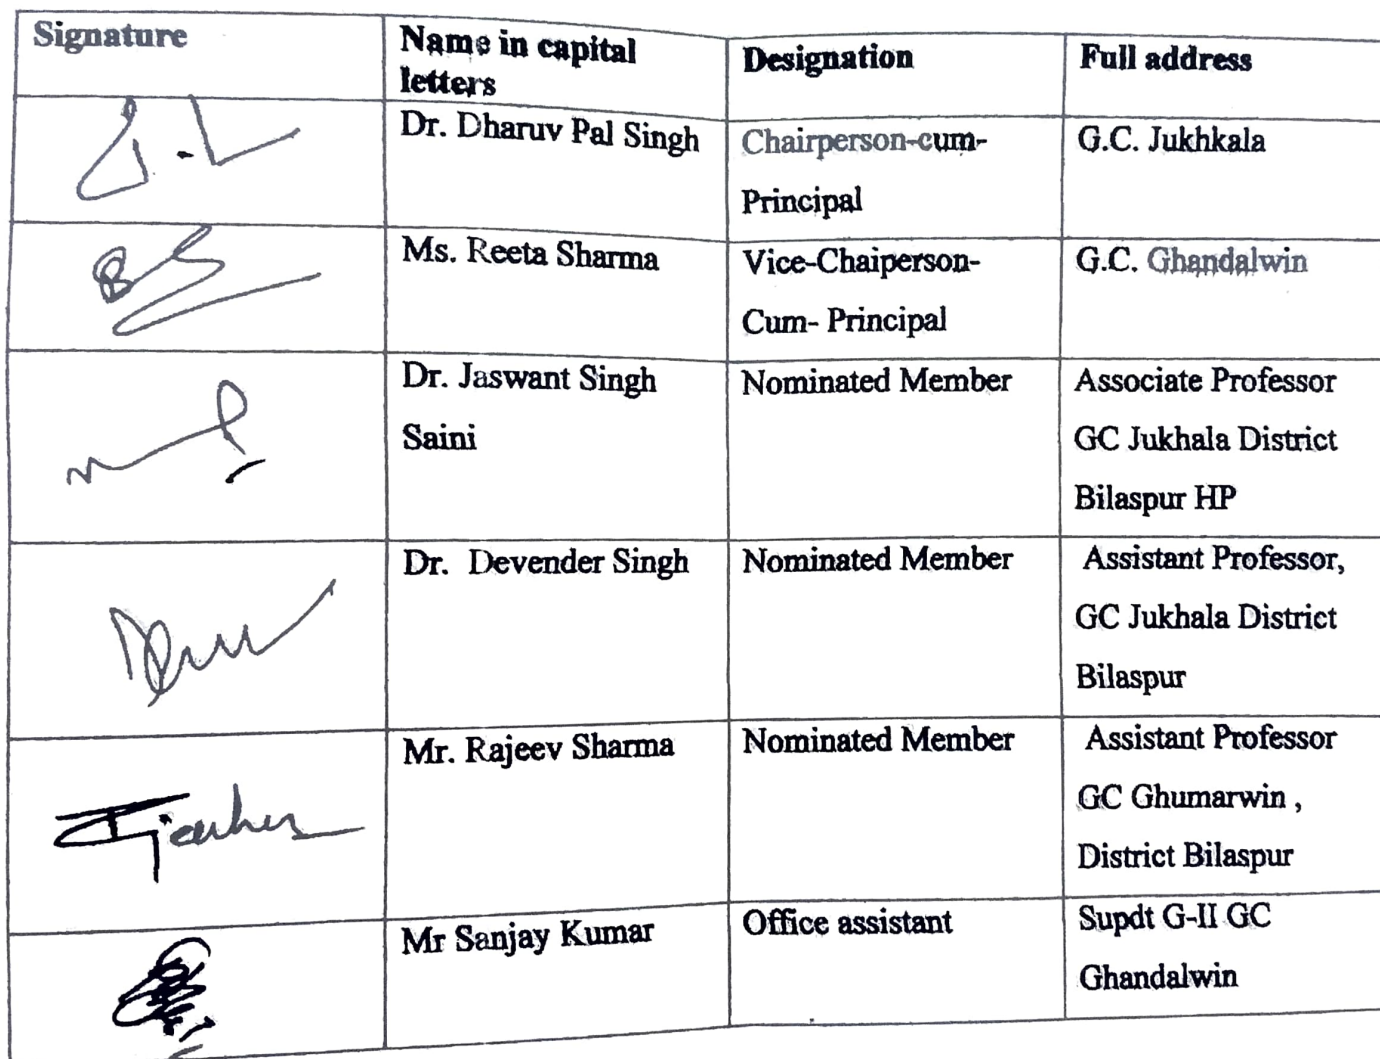 Signature
Name in capital
letters
Designation
Full address
Dr. Dharuv Pal Singh
Chairperson-cum-
Principal
G.C. Jukhkala
Ms. Reeta Sharma
Vice-Chaiperson-
Cum- Principal
G.C. Ghandalwin
Dr. Jaswant Singh
Saini
Nominated Member
Associate Professor
GC Jukhala District
Bilaspur HP
Dr. Devender Singh
Nominated Member
Assistant Professor,
GC Jukhala District
Bilaspur
Mr. Rajeev Sharma
Nominated Member
Assistant Professor
GC Ghumarwin ,
District Bilaspur
Mr Sanjay Kumar
Office assistant
Supdt G-II GC
Ghandalwin